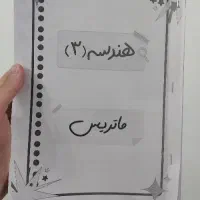 هندسه (۳)
ماتریس